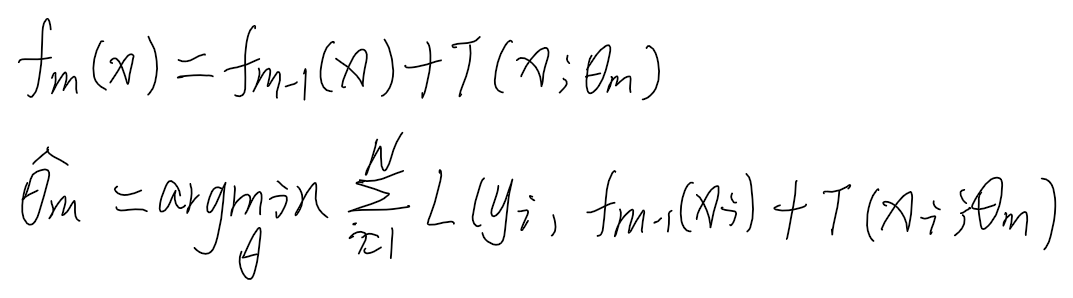 f_m(x) = f_{m-1}(x) + T(x; θ_m)
θ̂_m = argmin_θ Σ_{i=1}^{N} L(y_i, f_{m-1}(x_i) + T(x_i; θ_m)